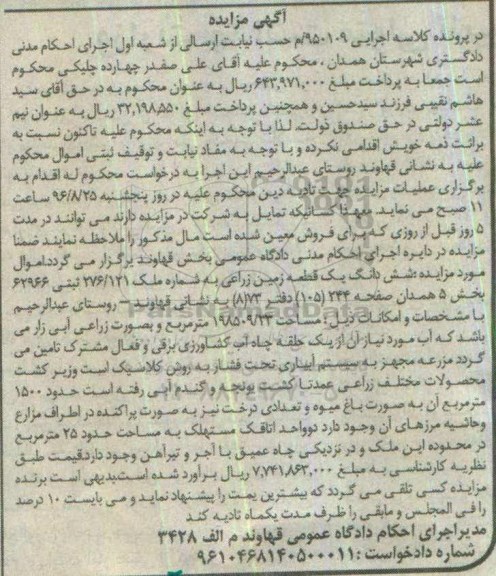 آگهی مزایده
در پرونده کلاسه اجرایی ۹۵۰۱۰۹/م حسب نیابت ارسالی از شعبه اول اجرای احکام مدنی
دادگستری شهرستان همدان ، محکوم علیه آقای علی صفدر چهارده چلیکی محکوم
است جمعا به پرداخت مبلغ ۶۴۳,۹۷۱,۰۰۰ ریال به عنوان محکوم به در حق آقای سید
هاشم نقیبی فرزند سیدحسین و همچنین پرداخت مبلغ ۳۲,۱۹۸,۵۵۰ ریال به عنوان نیم
عشر دولتی در حق صندوق دولت. لذا با توجه به اینکه محکوم علیه تاکنون نسبت به
برائت ذمه خویش اقدامی نکرده و با توجه به مفاد نیابت و توقیف ثبتی اموال محکوم
علیه به نشانی قهاوند روستای عبدالرحیم این اجرا به درخواست محکوم له اقدام به
برگزاری عملیات مزایده جهت تادیه دین محکوم علیه در روز پنجشنبه ۹۶/۸/۲۵ ساعت
۱۱ صبح می نماید. کسانیکه تمایل به شرکت در مزایده دارند می توانند در مدت
۵ روز قبل از روزی که برای فروش معین شده است مال مذکور را ملاحظه نمایند ضمنا
مزایده در دایره اجرای احکام مدنی دادگاه عمومی بخش قهاوند برگزار می گردد:اموال
مورد مزایده :شش دانگ یک قطعه زمین زراعی به شماره ملک ۲۷۶/۱۲۱ ثبتی ۶۲۹۶۶
بخش ۵ همدان صفحه ۲۴۴ (۱۰۵) دفتر ۸/۷۳) به نشانی قهاوند – روستای عبدالرحیم
با مشخصات و امکانات ذیل: مساحت ۱۹۸۵۰۹/۱۳ مترمربع و بصورت زراعی آبی زار می
باشد که آب مورد نیاز آن از یک حلقه چاه آب کشاورزی برقی و فعال مشترک تامین می
گردد مزرعه مجهز به سیستم آبیاری تحت فشار به روش کلاسیک است وزیر کشت
محصولات مختلف زراعی عمدتا کشت یونجه و گندم آبی رفته است حدود ۱۵۰۰
مترمربع آن به صورت باغ میوه و تعدادی درخت نیز به صورت پراکنده در اطراف مزارع
وحاشیه مرزهای آن وجود دارد دوواحد اتاقک مستهلک به مساحت حدود ۲۵ مترمربع
در محدوده این ملک و در نزدیکی چاه عمیق با آجر و تیرآهن وجود داردقیمت طبق
نظریه کارشناسی به مبلغ ۷,۷۴۱,۸۶۳,۰۰۰ ریال برآورد شده است.بدیهی است برنده
مزایده کسی تلقی می گردد که بیشترین یمت را پیشنهاد نماید و می بایست ۱۰ درصد
را فی المجلس و مابقی را ظرف مدت یکماه تادیه کند
مدیراجرای احکام دادگاه عمومی قهاوند م الف ۳۴۲۸
شماره دادخواست :۹۶۱۰۴۶۸۱۴۰۵۰۰۰۱۱